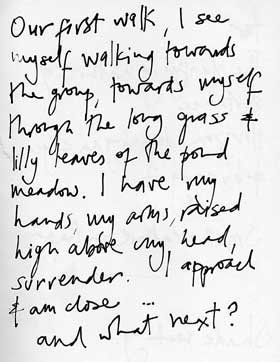 Our first walk, I see
myself walking towards
the group, towards myself
through the long grass &
lilly leaves of the pond
meadow. I have my
hands, my arms, raised
high above my head,
surrender. I approach
& am close ...
and what next?